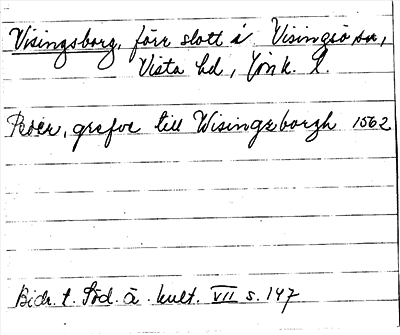 Visingsborg, förr slott i Visingsö sn,
Vista hd, Jönk. l.
Peder, grefve till Wisingzborgh 1562
Bidr. t. Söd. å. kult. VII s. 147